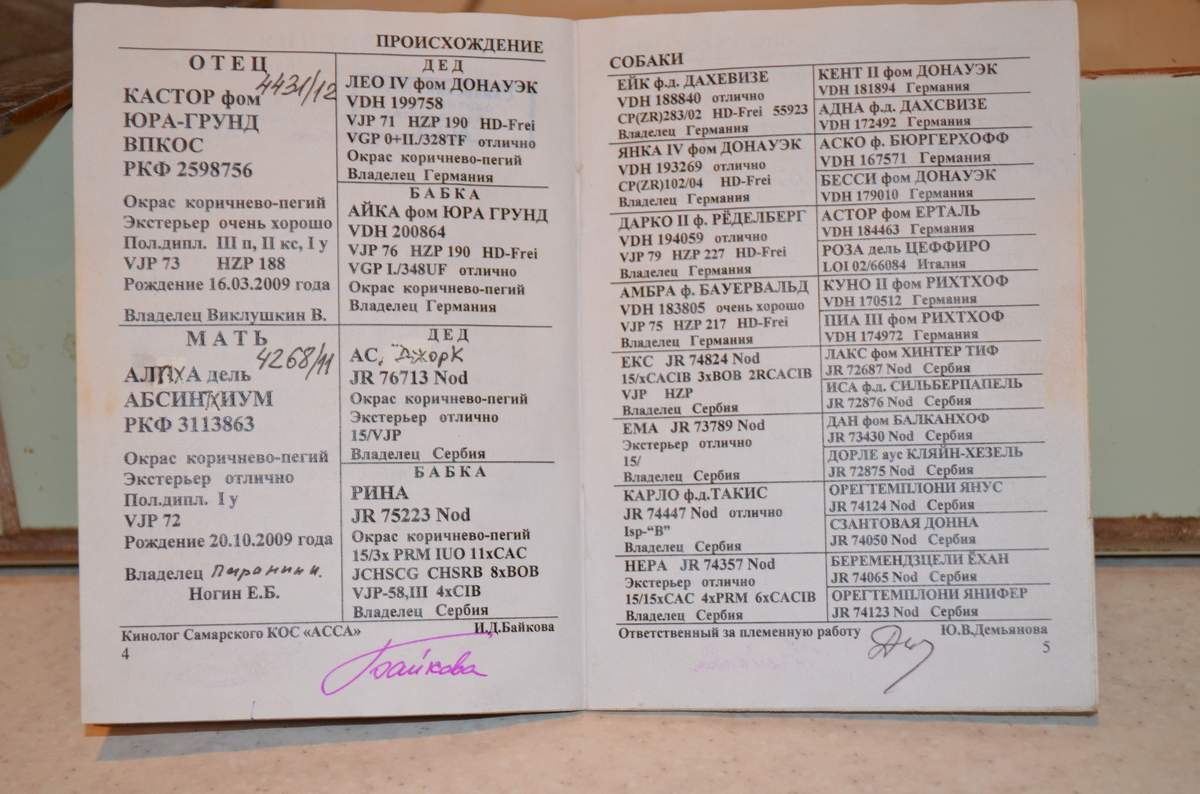 ПРОИСХОЖДЕНИЕ
ОТЕЦ
4431/12
КАСТОР фом
ЮРА-ГРУНД
ВПКОС
РКФ 2598756
Окрас коричнево-пегий
Экстерьер очень хорошо
Пол.дипл. III п, II кс, I у
VJP 73 HZP 188
Рождение 16.03.2009 года
Владелец Виклушкин В.
МАТЬ
4268/11
АЛПХА дель
АБСИНТХИУМ
РКФ 3113863
Окрас коричнево-пегий
Экстерьер отлично
Пол.дипл. I у
VJP 72
Рождение 20.10.2009 года
Владелец
Ногин Е.Б.
ДЕД
ЛЕО IV фом ДОНАУЭК
VDH 199758
VJP 71 HZP 190 HD-Frei
VGP 0+II./328TF отлично
Окрас коричнево-пегий
Владелец Германия
БАБКА
АЙКА фом ЮРА ГРУНД
VDH 200864
VJP 76 HZP 190 HD-Frei
VGP I./348UF отлично
Окрас коричнево-пегий
Владелец Германия
ДЕД
АС, ДжорК
JR 76713 Nod
Окрас коричнево-пегий
Экстерьер отлично
15/VJP
Владелец Сербия
БАБКА
РИНА
JR 75223 Nod
Окрас коричнево-пегий
15/3x PRM IUO 11xCAC
JCHSCG CHSRB 8xBOB
VJP-58,III 4xCIB
Владелец Сербия
Кинолог Самарского КОС «АССА» И.Д.Байкова
4
Байкова
СОБАКИ
ЕЙК ф.д. ДАХЕВИЗЕ
VDH 188840 отлично
CP(ZR)283/02 HD-Frei 55923
Владелец Германия
ЯНКА IV фом ДОНАУЭК
VDH 193269 отлично
CP(ZR)102/04 HD-Frei
Владелец Германия
ДАРКО II ф. РЁДЕЛБЕРГ
VDH 194059 отлично
VJP 79 HZP 227 HD-Frei
Владелец Германия
АМБРА ф. БАУЕРВАЛЬД
VDH 183805 очень хорошо
VJP 75 HZP 217 HD-Frei
Владелец Германия
ЕКС JR 74824 Nod
15/xCACIB 3xBOB 2RCACIB
VJP HZP
Владелец Сербия
ЕМА JR 73789 Nod
Экстерьер отлично
15/
Владелец Сербия
КАРЛО ф.д.ТАКИС
JR 74447 Nod отлично
Isp-“B”
Владелец Сербия
НЕРА JR 74357 Nod
Экстерьер отлично
15/15xCAC 4xPRM 6xCACIB
Владелец Сербия
КЕНТ II фом ДОНАУЭК
VDH 181894 Германия
АДНА ф.д. ДАХСВИЗЕ
VDH 172492 Германия
АСКО ф. БЮРГЕРХОФФ
VDH 167571 Германия
БЕССИ фом ДОНАУЭК
VDH 179010 Германия
АСТОР фом ЕРТАЛЬ
VDH 184463 Германия
РОЗА дель ЦЕФФИРО
LOI 02/66084 Италия
КУНО II фом РИХТХОФ
VDH 170512 Германия
ПИА III фом РИХТХОФ
VDH 174972 Германия
ЛАКС фом ХИНТЕР ТИФ
JR 72687 Nod Сербия
ИСА ф.д. СИЛЬБЕРПАПЕЛЬ
JR 72876 Nod Сербия
ДАН фом БАЛКАНХОФ
JR 73430 Nod Сербия
ДОРЛЕ аус КЛЯЙН-ХЕЗЕЛЬ
JR 72875 Nod Сербия
ОРЕГТЕМПЛОНИ ЯНУС
JR 74124 Nod Сербия
СЗАНТОВАЯ ДОННА
JR 74050 Nod Сербия
БЕРЕМЕНДЗЦЕЛИ ЁХАН
JR 74065 Nod Сербия
ОРЕГТЕМПЛОНИ ЯНИФЕР
JR 74123 Nod Сербия
Ответственный за племенную работу Ю.В.Демьянова
5